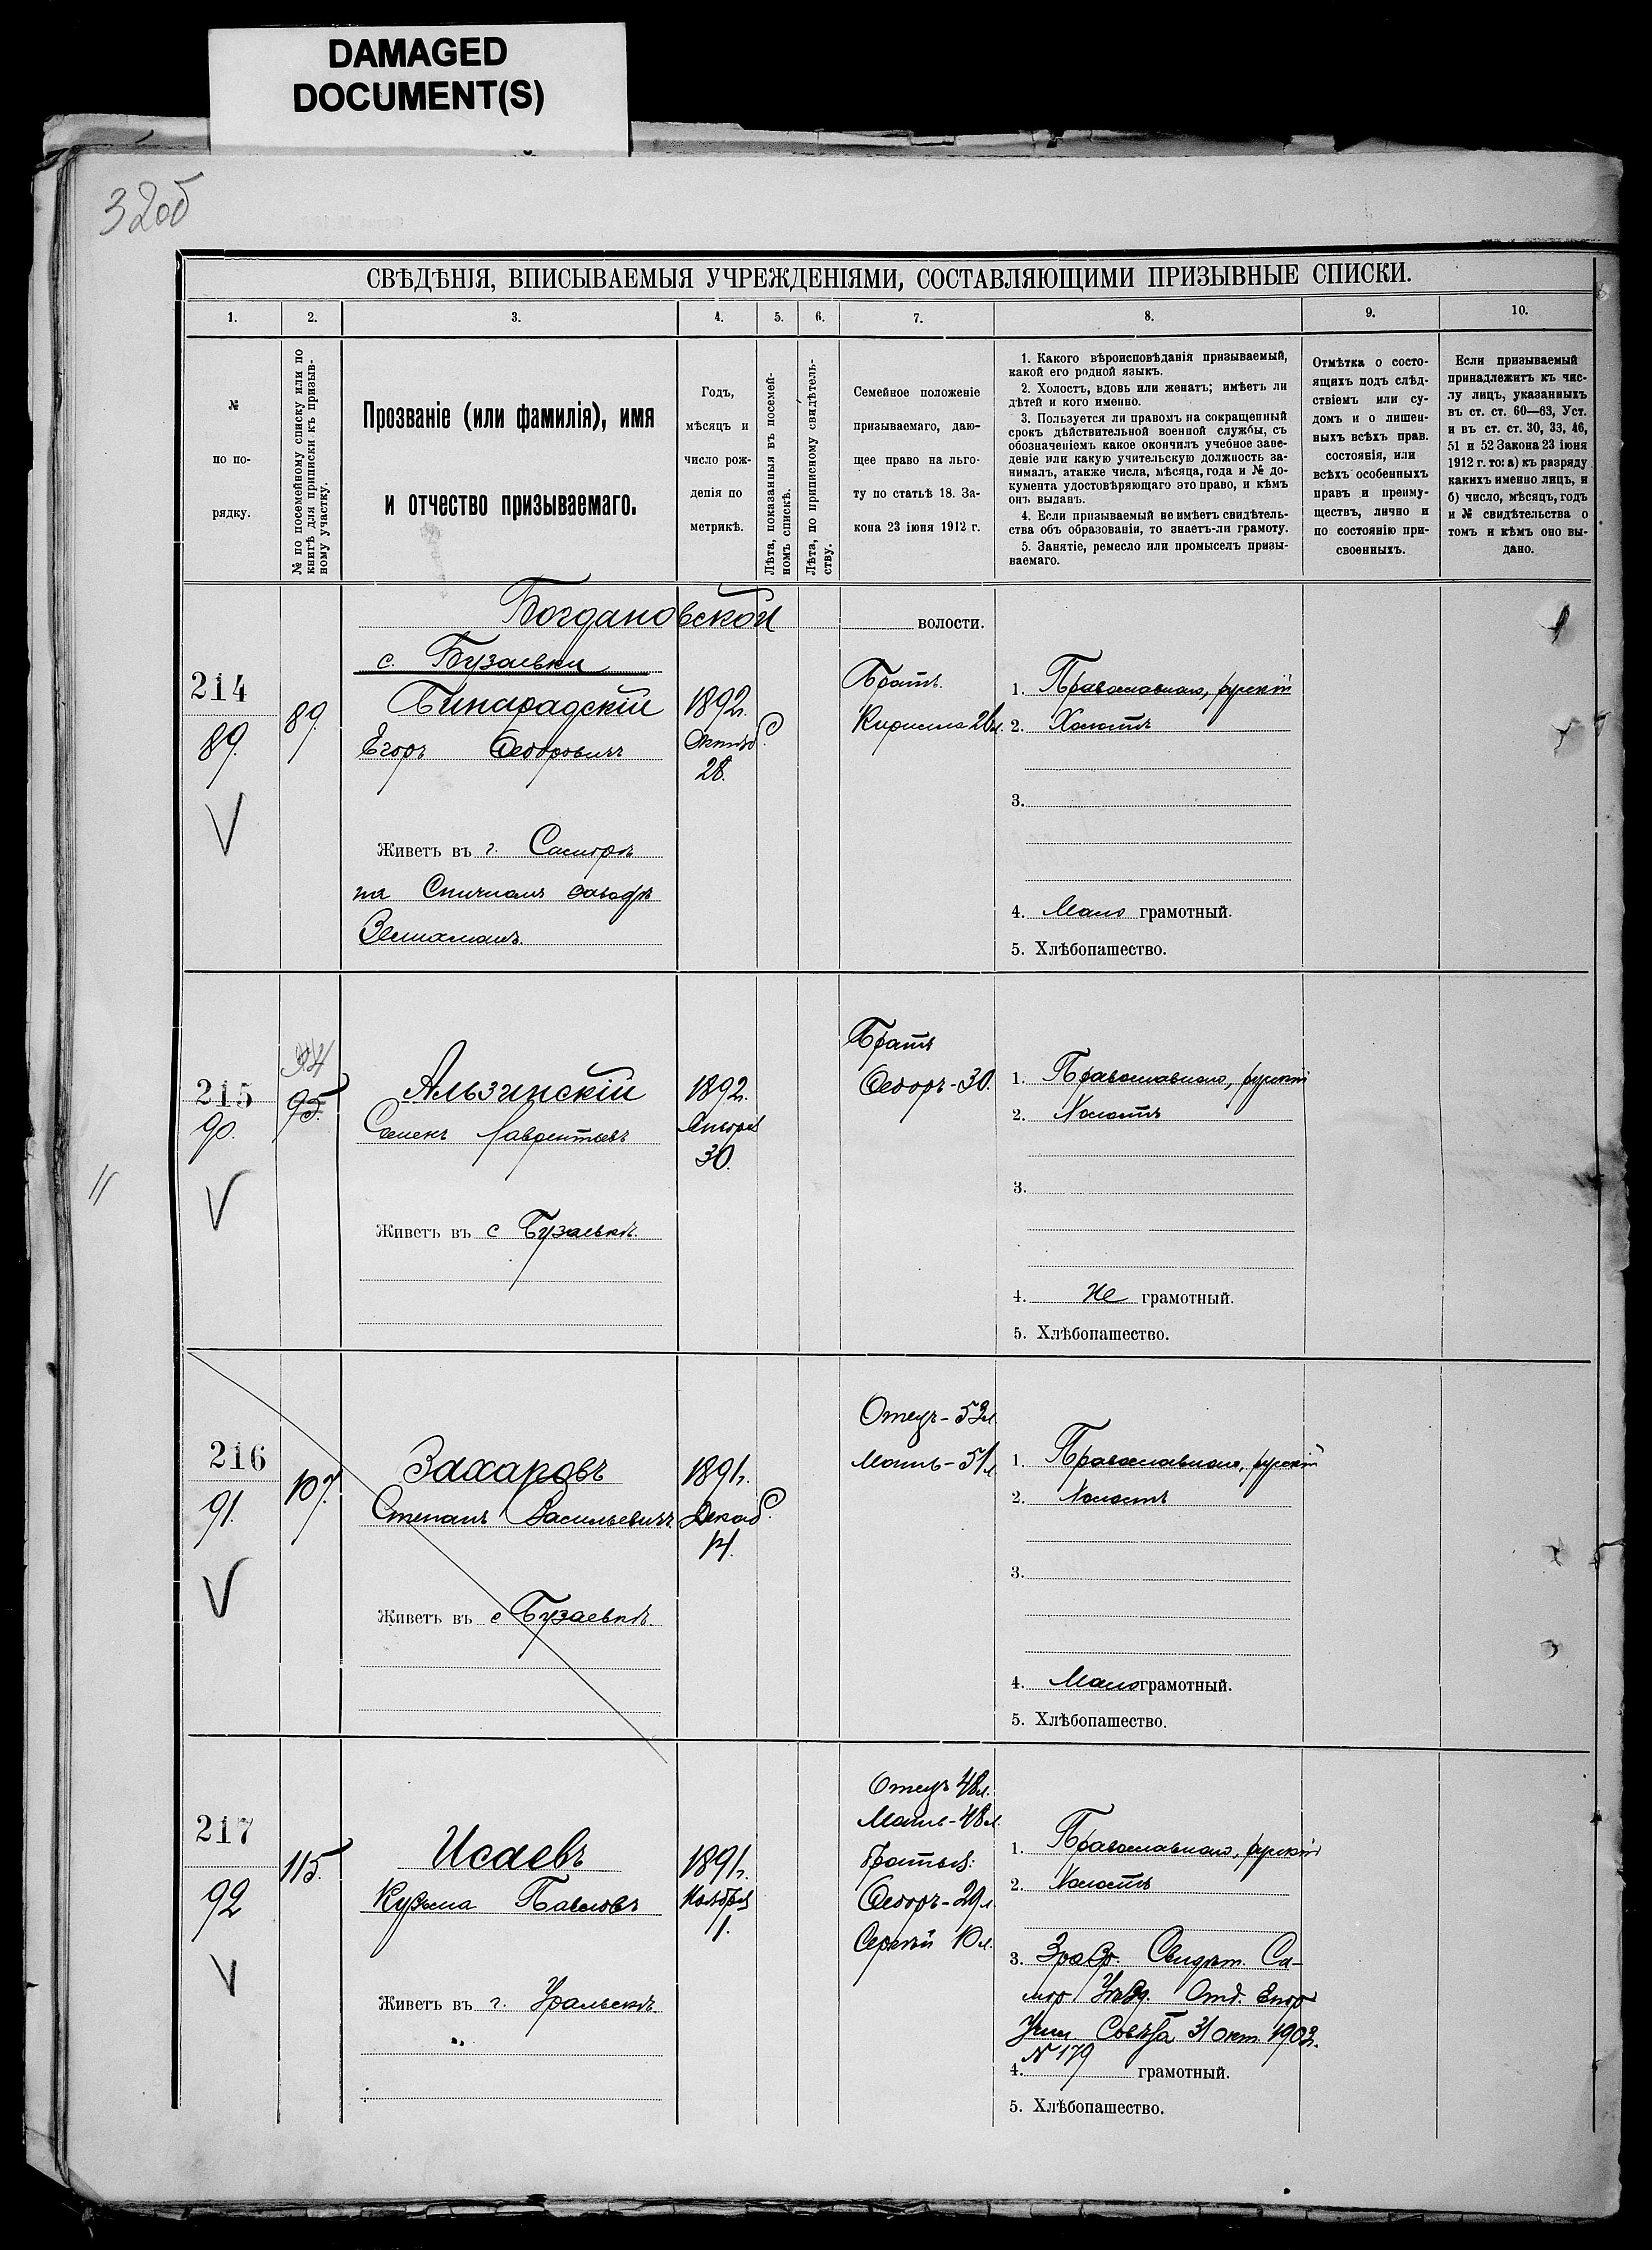 DAMAGED
DOCUMENT(S)
32об
СВѢДѢНІЯ, ВПИСЫВАЕМЫЯ УЧРЕЖДЕНІЯМИ, СОСТАВЛЯЮЩИМИ ПРИЗЫВНЫЕ СПИСКИ.
1. 2. 3. 4. 5. 6. 7. 8. 9. 10.
№
по по-
рядку.
№ по посемейному списку или по
книгѣ для приписки къ призыв-
ному участку.
Прозваніе (или фамилія), имя
и отчество призываемаго.
Годъ,
мѣсяцъ и
число рож-
денія по
метрикѣ.
Лѣта, показанныя въ посемей-
номъ спискѣ.
Лѣта, по приписному свидѣтель-
ству.
Семейное положеніе
призываемаго, даю-
щее право на льго-
ту по статьѣ 18. За-
кона 23 іюня 1912 г.
1. Какого вѣроисповѣданія призываемый,
какой его родной языкъ.
2. Холостъ, вдовъ или женатъ; имѣетъ ли
дѣтей и кого именно.
3. Пользуется ли правомъ на сокращенный
срокъ дѣйствительной военной службы, съ
обозначеніемъ какое окончилъ учебное заве-
деніе или какую учительскую должность за-
нималъ, атакже числа, мѣсяца, года и № до-
кумента удостовѣряющаго это право, и кѣмъ
онъ выданъ.
4. Если призываемый не имѣетъ свидѣтель-
ства объ образованіи, то знаетъ-ли грамоту.
5. Занятіе, ремесло или промыселъ призы-
ваемаго.
Отмѣтка о состо-
ящихъ подъ слѣд-
ствіемъ или су-
домъ и о лишен-
ныхъ всѣхъ прав.
состоянія, или
всѣхъ особенныхъ
правъ и преиму-
ществъ, лично и
по состоянію при-
своенныхъ.
Если призываемый
принадлежитъ къ чис-
лу лицъ, указанныхъ
въ ст. ст. 60—63, Уст.
и въ ст. ст. 30, 33, 46,
51 и 52 Закона 23 іюня
1912 г. то: а) къ разряду
какихъ именно лицъ, и
б) число, мѣсяцъ, годъ
и № свидѣтельства о
томъ и кѣмъ оно вы-
дано.
Богдановской волости.
с. Бузаевки
214
89.
89.
Бинарадскій
Егоръ Федоровичъ
Живетъ въ г. Самарѣ
на Спичномъ заводѣ
1892г.
Октяб.
28.
Братъ
Кирилла 26л.
1. Православнаго, русскій
2. Холостъ
3.
4. Мало грамотный.
5. Хлѣбопашество.
215
90.
94
95.
Альзинскій
Семенъ Лаврентьевъ
Живетъ въ с Бузаевкѣ.
1892г.
Января
30.
Братъ
Федоръ-30.
1. Православнаго, русскій
2. Холостъ
3.
4. Не грамотный.
5. Хлѣбопашество.
216
91.
107.
Захаровъ
Степанъ Васильевичъ
Живетъ въ с Бузаевкѣ.
1891г.
Декаб.
14.
Отецъ-53л
Мать-51л
1. Православнаго, русскій
2. Холостъ
3.
4. Мало грамотный.
5. Хлѣбопашество.
217
92
115.
Исаевъ
Кузьма Павловъ
Живетъ въ г. Уральскѣ.
1891г.
Ноября
1.
Отецъ 48л.
Мать-48л.
братья:
Федоръ-29л
Сергѣй 10л.
1. Православнаго, русскій
2. Холостъ
3. Свидѣт. Са-
мар Уѣзд. Отд. Епар
Учил. Совѣта 31 окт. 1903.
№ 179
4. грамотный.
5. Хлѣбопашество.